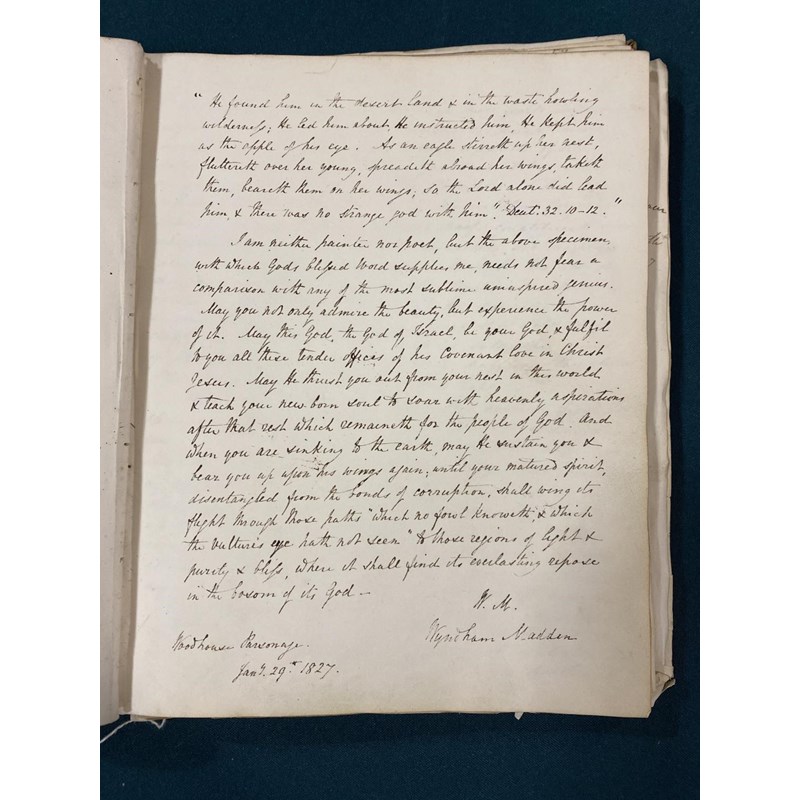 "He found him in the desert land & in the waste howling
wilderness; He led him about, He instructed him, He kept him
as the apple of his eye. As an eagle stirreth up her nest,
fluttereth over her young, spreadeth abroad her wings, taketh
them, beareth them on her wings; so the Lord alone did lead
him, & there was no strange god with him". Deut. 32. 10-12."
I am neither painter nor poet, but the above specimen,
with which Gods blessed Word supplies me, needs not fear a
comparison with any of the most sublime uninspired genius.
May you not only admire the beauty, but experience the power
of it. May this God, the God of Israel, be your God, & fulfil
to you all these tender offices of his Covenant love in Christ
Jesus. May He thrust you out from your nest in this world
& teach your new-born soul to soar with heavenly aspirations
after that rest which remaineth for the people of God. And
when you are sinking to the earth, may He sustain you &
bear you up upon his wings again; until your matured spirit,
disentangled from the bonds of corruption, shall wing its
flight through those paths "which no fowl knoweth, & which
the vulture's eye hath not seen" to those regions of light &
purity & bliss, where it shall find its everlasting repose
in the bosom of its God—
W. M.
Wyndham Madden
Woodhouse Parsonage.
Jany. 29th 1827.